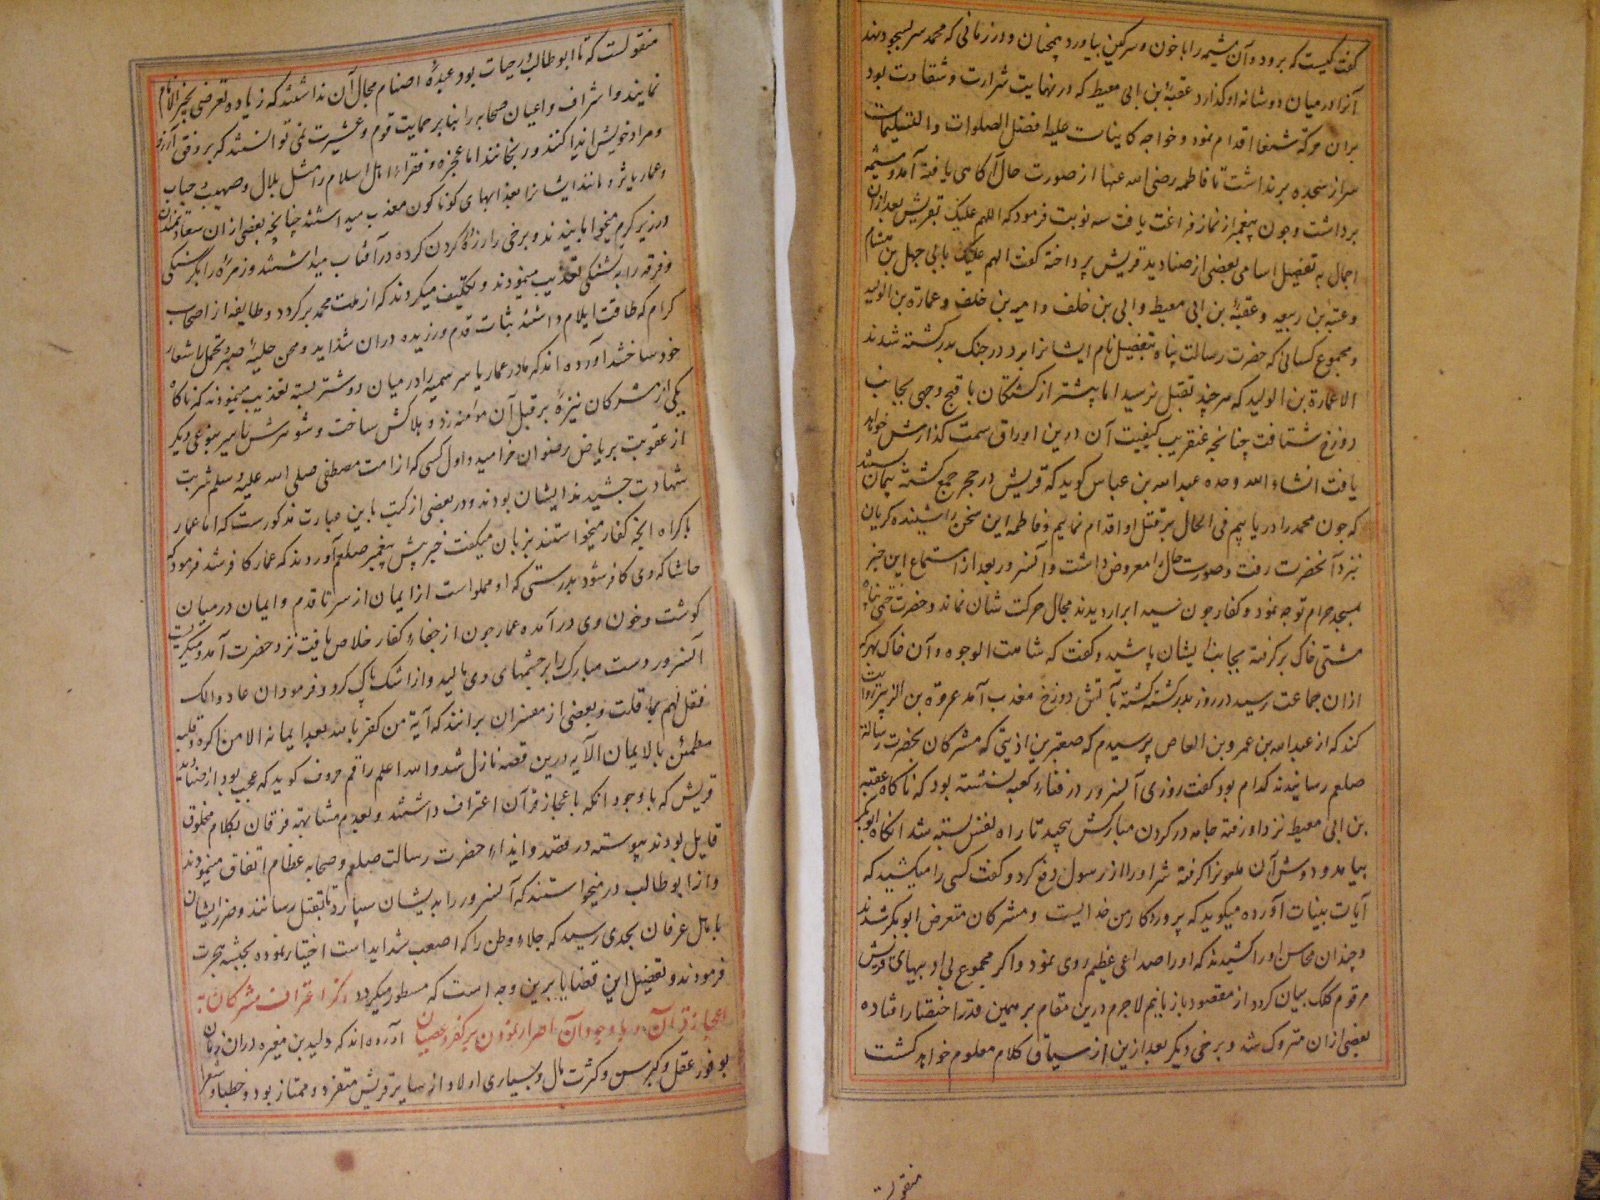 گفت کیست که برود و آن مشیمه را با خون و سرگین بیاورد همچنان و در زمانی که محمد سر بسجود نهد
آنرا در میان دو شانه او گذارد عقبة بن ابی معیط که در نهایت شرارت و شقاوت بود
بران حرکت شنعا اقدام نمود و خواجه کاینات علیه افضل الصلوات و التسلیمات
سر از سجده برنداشت تا فاطمه رضی الله عنها از صورت حال آگاهی یافته آمد و مشیمه
برداشت و چون پیغمبر از نماز فراغت یافت سه نوبت فرمود که اللهم علیک بقریش بعد ازان
اجمال به تفصیل اسامی بعضی از صنادید قریش پرداخته گفت الهم علیک بابی جهل بن هشام
و عتبه بن ربیعه و عقبة بن ابی معیط و ابی بن خلف و امیه بن خلف و عمارة بن الولید
و مجموع کسانی که حضرت رسالت پناه بتفصیل نام ایشانرا برد در جنک بدر کشته شدند
الا عمارة بن الولید که هر چند بقتل نرسید اما پیشتر از کشتکان باقبح وجهی بجانب
دوزخ شتافت چنانچه عنقریب کیفیت آن درین اوراق سمت گذارش خواهد
یافت انشاء الله وحده عبد الله بن عباس گوید که قریش در حجر جمع گشته پیمان بستند
که چون محمد را دریابیم فی الحال بر قتل او اقدام نمایم و فاطمه این سخن را شنیده گریان
نزد آنحضرت رفت و صورت حال را معروض داشت و آنسرور بعد از استماع این خبر
بمسجد حرام توجه نمود و کفار چون سید ابرار دیدند مجال حرکت شان نماند و حضرت ختمی پناه
مشتی خاک برگرفته بجانب ایشان پاشید و گفت که شاهت الوجوه و آن خاک بهر که
ازان جماعت رسید در روز بدر کشته گشته بآتش دوزخ معذب آمد عروة بن الزبیر روایت
کند که از عبد الله بن عمرو بن العاص پرسیدم که صعبترین اذیتی که مشرکان بحضرت رسالت
صلعم رسانیدند کدام بود گفت روزی آنسرور در فناء کعبه نشسته بود که ناگاه عقبه
بن ابی معیط نزد او رفته جامه در گردن مبارکش پیچید تا راه نفس بسته شد آنگاه ابوبکر
بیامد و دوش آن ملعون را گرفته شر او را از رسول دفع کرد و گفت کسی را میکشید که
آیات بینات آورده میگوید که پروردگار من خدایست و مشرکان متعرض ابوبکر شدند
و چندان محاسن او را کشیدند که او را صداعی عظیم روی نمود و اگر مجموع بی ادبیهای قریش
مرقوم کلک بیان گردد از مقصود باز مانیم لاجرم درین مقام بر همین قدر اختصار افتاده
بعضی ازان متروک شد و برخی دیگر بعد ازین از سیاق کلام معلوم خواهد گشت
منقولست
منقولست که تا ابوطالب در حیات بود عبدهٔ اصنام مجال آن نداشتند که زیاده تعرضی بخیر الانام
نمایند و اشراف و اعیان صحابه را بنابر حمایت قوم و عشیرت نمی توانستند که بر وفق آرزو
و مراد خویش ایذا کنند و رنجانند اما عجزه و فقراء اهل اسلام را مثل بلال و صهیب و خباب
و عمار یاسر و مانند ایشانرا بعذابهای گوناگون معذب میداشتند چنانچه بعضی از ان سعادتمندان
در زیر گرم میخوابانیدند و برخی را زره در گردن کرده در آفتاب میداشتند و زمره را بگرسنگی
و فرقه را بتشنگی تعذیب مینمودند و تکلیف میکردند که از ملت محمد برگردد و طایفه از اصحاب
کرام که طاقت ایلام داشتند بثبات قدم ورزیده دران شداید و محن حلیهٔ صبر و تحمل را شعار
خود ساختند آورده اند که مادر عمار یاسر سمیه را در میان دو شتر بسته تعذیب مینمودند که ناگاه
یکی از مشرکان نیزهٔ بر قبل آن مؤمنه زد و هلاکش ساخت و شوهرش یاسر بنوعی دیگر
از عقوبت بریاض رضوان خرامید و اول کسی که از امت مصطفی صلی الله علیه و سلم شربت
شهادت چشیدند ایشان بودند و در بعضی از کتب باین عبارت مذکورست که اما عمار
باکراه آنچه کفار میخواستند بزبان میگفت خبر پیش پیغمبر صلعم آوردند که عمار کافر شد فرمود که
حاشا که وی کافر شود بدرستی که او مملو است از ایمان از سر تا قدم و ایمان در میان
گوشت و خون وی در آمده عمار چون از جفاء کفار خلاص یافت نزد حضرت آمد و میگریست
آنسرور دست مبارک را بر چشمهای وی مالید و از اشک پاک کرد و فرمود ان عادوا لک
فقل لهم بما قلت و بعضی از مفسران برانند که آیة من کفر بالله بعد ایمانه الا من اکره و قلبه
مطمئن بالایمان الآیه درین قصه نازل شد و الله اعلم راقم حروف گوید که عجب بود از صنادید
قریش که با وجود آنکه باعجاز قرآن اعتراف داشتند و بعدم مشابهه فرقان بکلام مخلوق
قایل بودند پیوسته در قصد و ایذاء حضرت رسالت صلعم و صحابه عظام اتفاق مینمودند
و از ابوطالب در میخواستند که آنسرور را بدیشان سپارد تا بقتل رسانند و ضرر ایشان
باهل عرفان بحدی رسید که جلاء وطن را که اصعب شدایداست اختیار نموده بحبشه هجرت
فرمودند و تفصیل این قضایا برین وجه است که مسطور میگردد ذکر اعتراف مشرکان به
اعجاز قرآن و با وجود آن اصرار نمودن بر کفر و عصیان آورده اند که ولید بن مغیره دران زمان
بوفور عقل و کبر سن و کثرت مال و بسیاری اولاد از سایر قریش متفرد و ممتاز بود و خطبا و شعرا